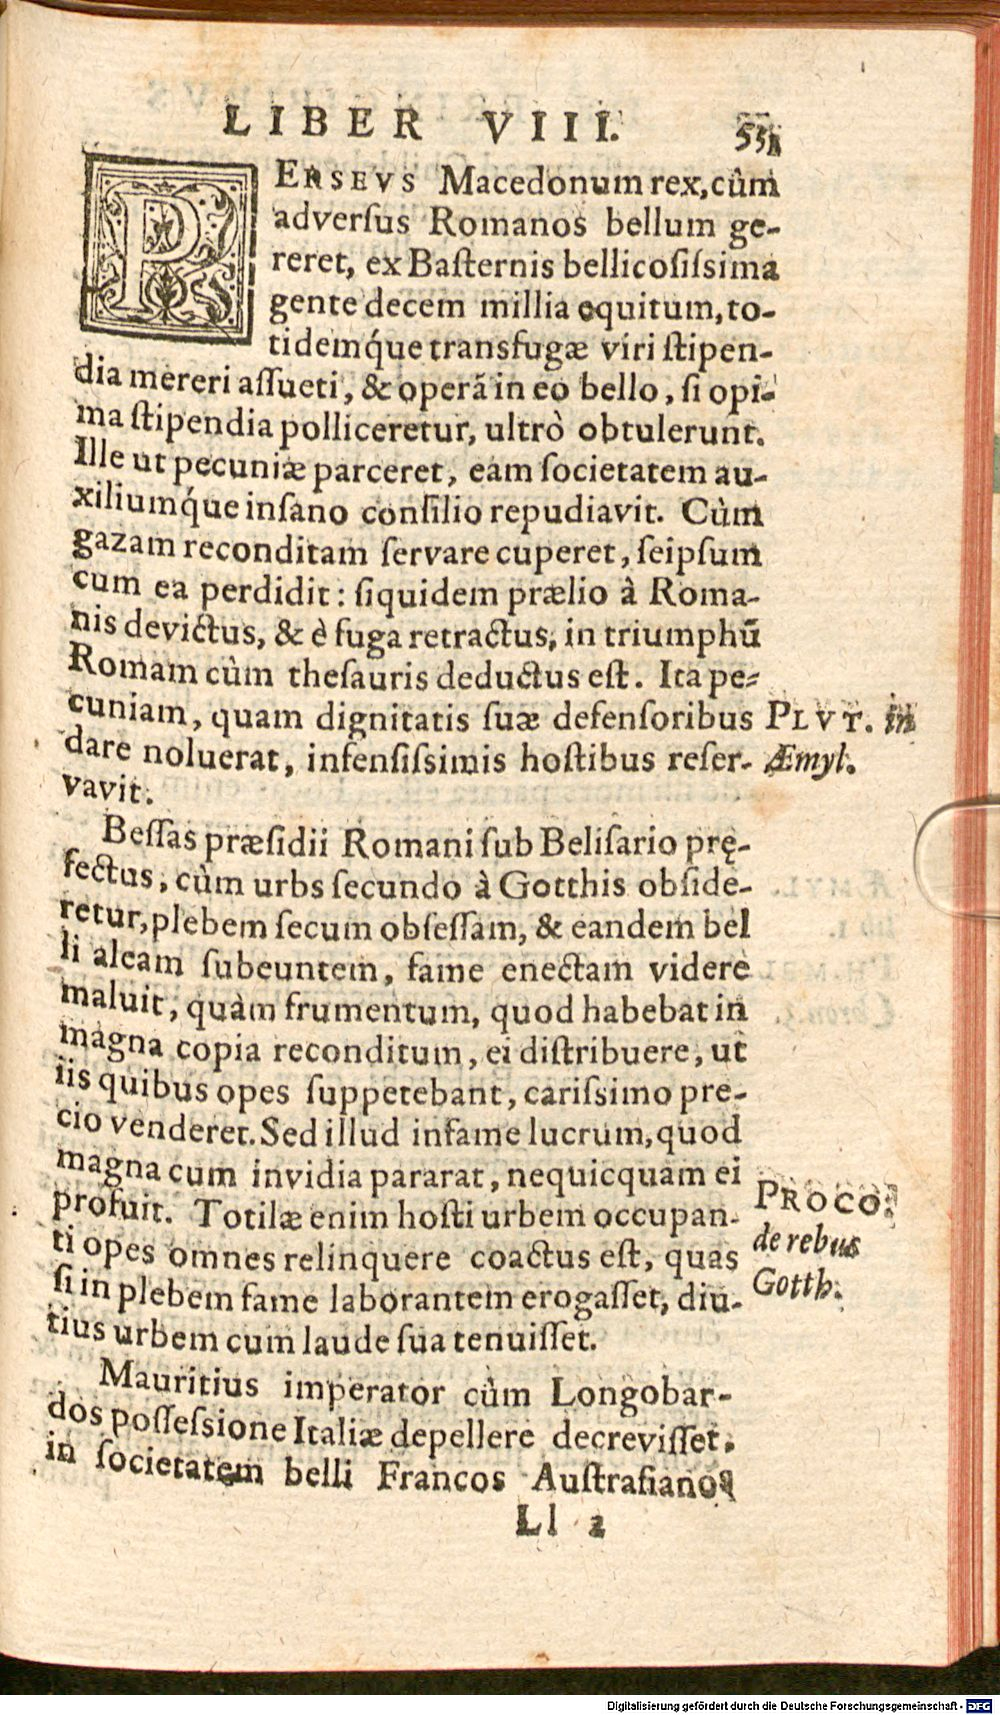 LIBER VIII. 531
PERSEVS Macedonum rex, cùm
adverſus Romanos bellum ge-
reret, ex Baſternis bellicoſiſsima
gente decem millia equitum, to-
tidemq́ue transfugæ viri ſtipen-
dia mereri aſſueti, & operã in eo bello, ſi opi-
ma ſtipendia polliceretur, ultrò obtulerunt.
Ille ut pecuniæ parceret, eam ſocietatem au-
xiliumq́ue inſano conſilio repudiavit. Cùm
gazam reconditam ſervare cuperet, ſeipſum
cum ea perdidit: ſiquidem prælio à Roma-
nis devictus, & è fuga retractus, in triumphũ
Romam cùm theſauris deductus eſt. Ita pe-
cuniam, quam dignitatis ſuæ defenſoribus PLVT. in
dare noluerat, infenſiſsimis hoſtibus reſer- Æmyl.
vavit.
Beſſas præſidii Romani ſub Beliſario prę-
fectus, cùm urbs ſecundo à Gotthis obſide-
retur, plebem ſecum obſeſſam, & eandem bel
li aleam ſubeuntem, fame enectam videre
maluit, quàm frumentum, quod habebat in
magna copia reconditum, ei diſtribuere, ut
iis quibus opes ſuppetebant, cariſsimo pre-
cio venderet. Sed illud infame lucrum, quod
magna cum invidia pararat, nequicquam ei
profuit. Totilæ enim hoſti urbem occupan- PROCO.
ti opes omnes relinquere coactus eſt, quas de rebus
ſi in plebem fame laborantem erogaſſet, diu- Gotth.
tius urbem cum laude ſua tenuiſſet.
Mauritius imperator cùm Longobar-
dos poſſeſsione Italiæ depellere decreviſſet,
in ſocietatem belli Francos Auſtraſianos
Ll 2
Digitalisierung gefördert durch die Deutsche Forschungsgemeinschaft - DFG